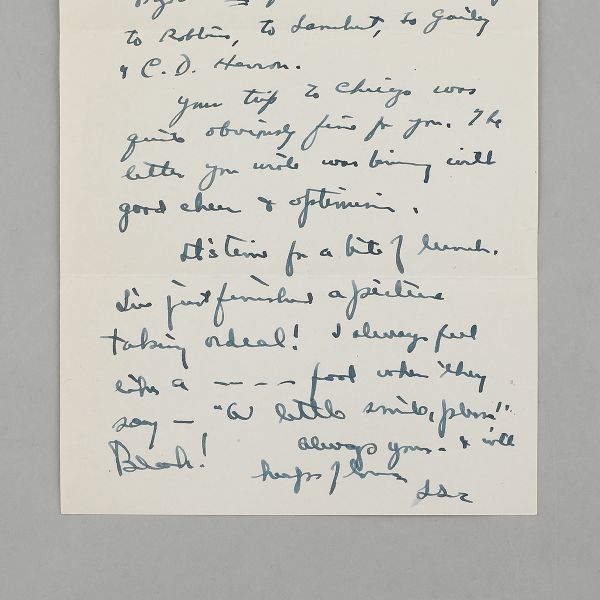 to Robbins, to Lambert, to Gaily
& C. D. Herron.
Your trip to Chicago was
quite obviously fine for you. The
letter you wrote was brimming with
good cheer & optimism.
It's time for a bite of lunch.
I've just finished a picture
taking ordeal! I always feel
like a — — — — fool when they
say — "a little smile, please"
Blaah!
always yours - & with
heaps of love